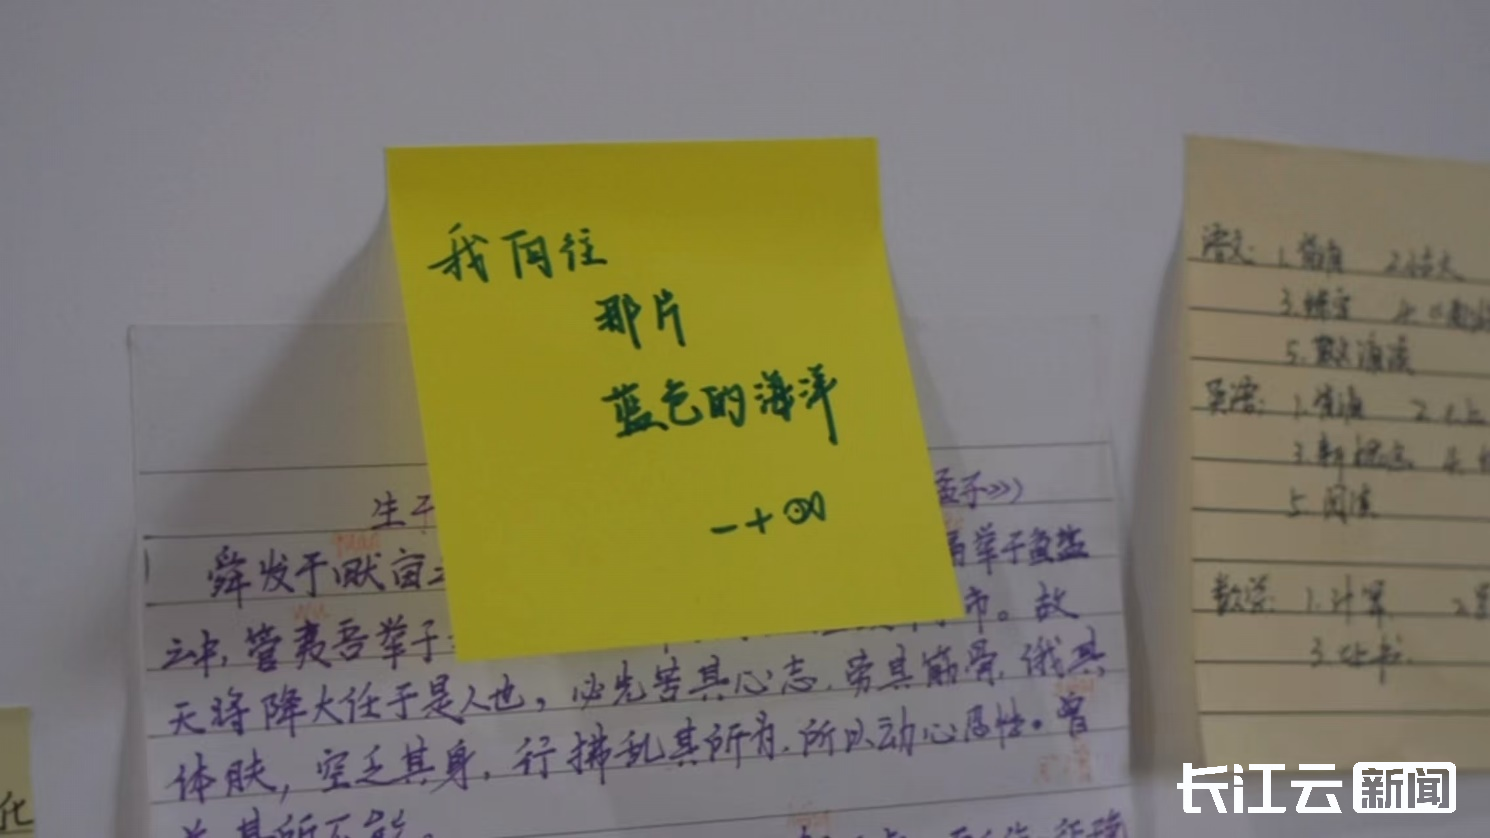 我向往
那片
蓝色的海洋
-+∞
生于
孟子》)
quan
舜发于畎亩之
举于鱼盐
wu
之中,管夷吾举于
市。故
天将降大任于是人也,必先苦其心志,劳其筋骨,饿其
体肤,空乏其身,行拂乱其所为,所以动心忍性。曾
益其所不能。
语文:1.
2.
3.
5.
英语:1.
2.
3.新概念
5.阅读
数学:1.计算
2.
3.
化
长江云新闻